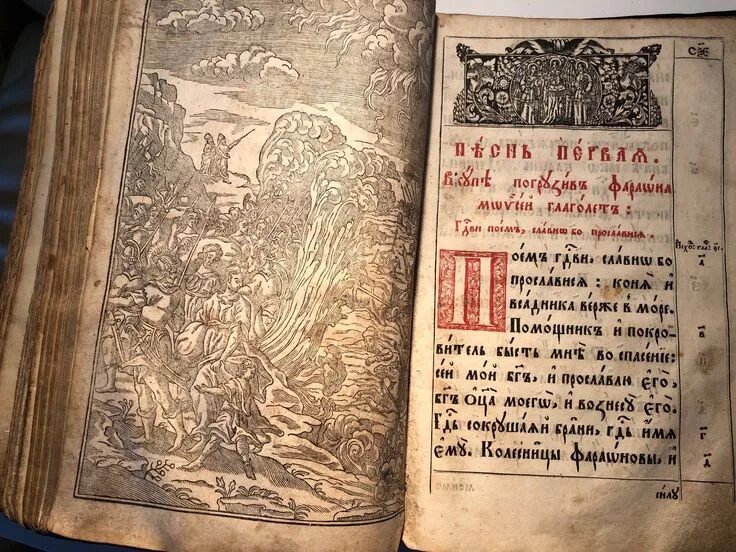 ПѢ́СНЬ ПЕ́РВАѦ.
В̾кꙋ́пѣ погрꙋзи́въ фараѡ́на
мѡѷсе́й глаго́летъ:
Гдⷭ҇ви пои́мъ, сла́внѡ бо просла́висѧ.
Пои́мъ гдⷭ҇ви, сла́внѡ бо
просла́висѧ: конѧ̀ и҆
вса́дника ве́рже в̾ мо́ре.
Помо́щникъ и҆ покро-
ви́тель бы́сть мнѣ̀ во спⷭ҇е́нїе:
се́й мо́й бг҃ъ, и҆ просла́влю є҆го̀,
бг҃ъ ѻ҆ц҃а̀ моегѡ̀, и҆ вознесꙋ̀ є҆го̀.
Гдⷭ҇ь сокрꙋша́ѧй бра̑ни, гдⷭ҇ь и҆́мѧ
є҆мꙋ̀. Колесни̑цы фараѡ́новы, и҆
си́лꙋ
а҃
в҃
г҃
д҃